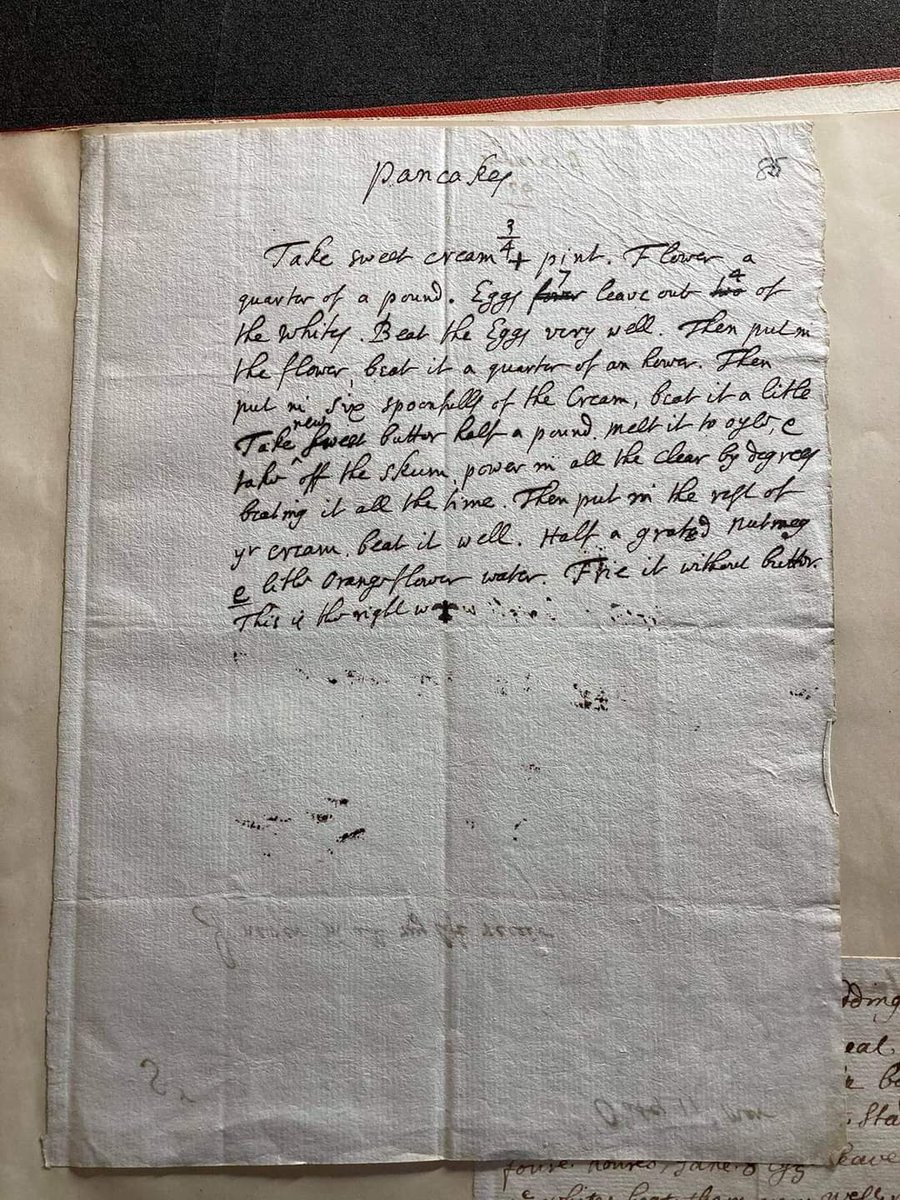 85
pancakes
Take sweet cream 3/4 + pint. Flower a
quarter of a pound. Eggs four 7 leave out two 4 of
the whites. Beat the Eggs very well. Then put in
the flower, beat it a quarter of an hower. Then
put in six spoonfulls of the Cream, beat it a litle
Take new sweet butter half a pound. melt it to oyle, e
take off the skum, power in all the clear by degrees
beating it all the time. Then put in the rest of
yr cream. beat it well. Half a grated nutmeg
e litle Orangeflower water. Frie it without butter.
This is the right way
dding
eal
Sta
leave
foure houres, take 8 egg
whites beat them very well